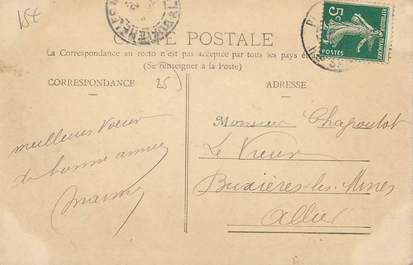 15€
CARTE POSTALE
La Correspondance au recto n'est pas acceptée par tous les pays
(Se renseigner à la Poste)
CORRESPONDANCE
25)
ADRESSE
5c
POSTES
meilleurs vœux
de bonne année
Monsieur Chapoutot
Le Vieux
Buxières-les-Mines
Allier